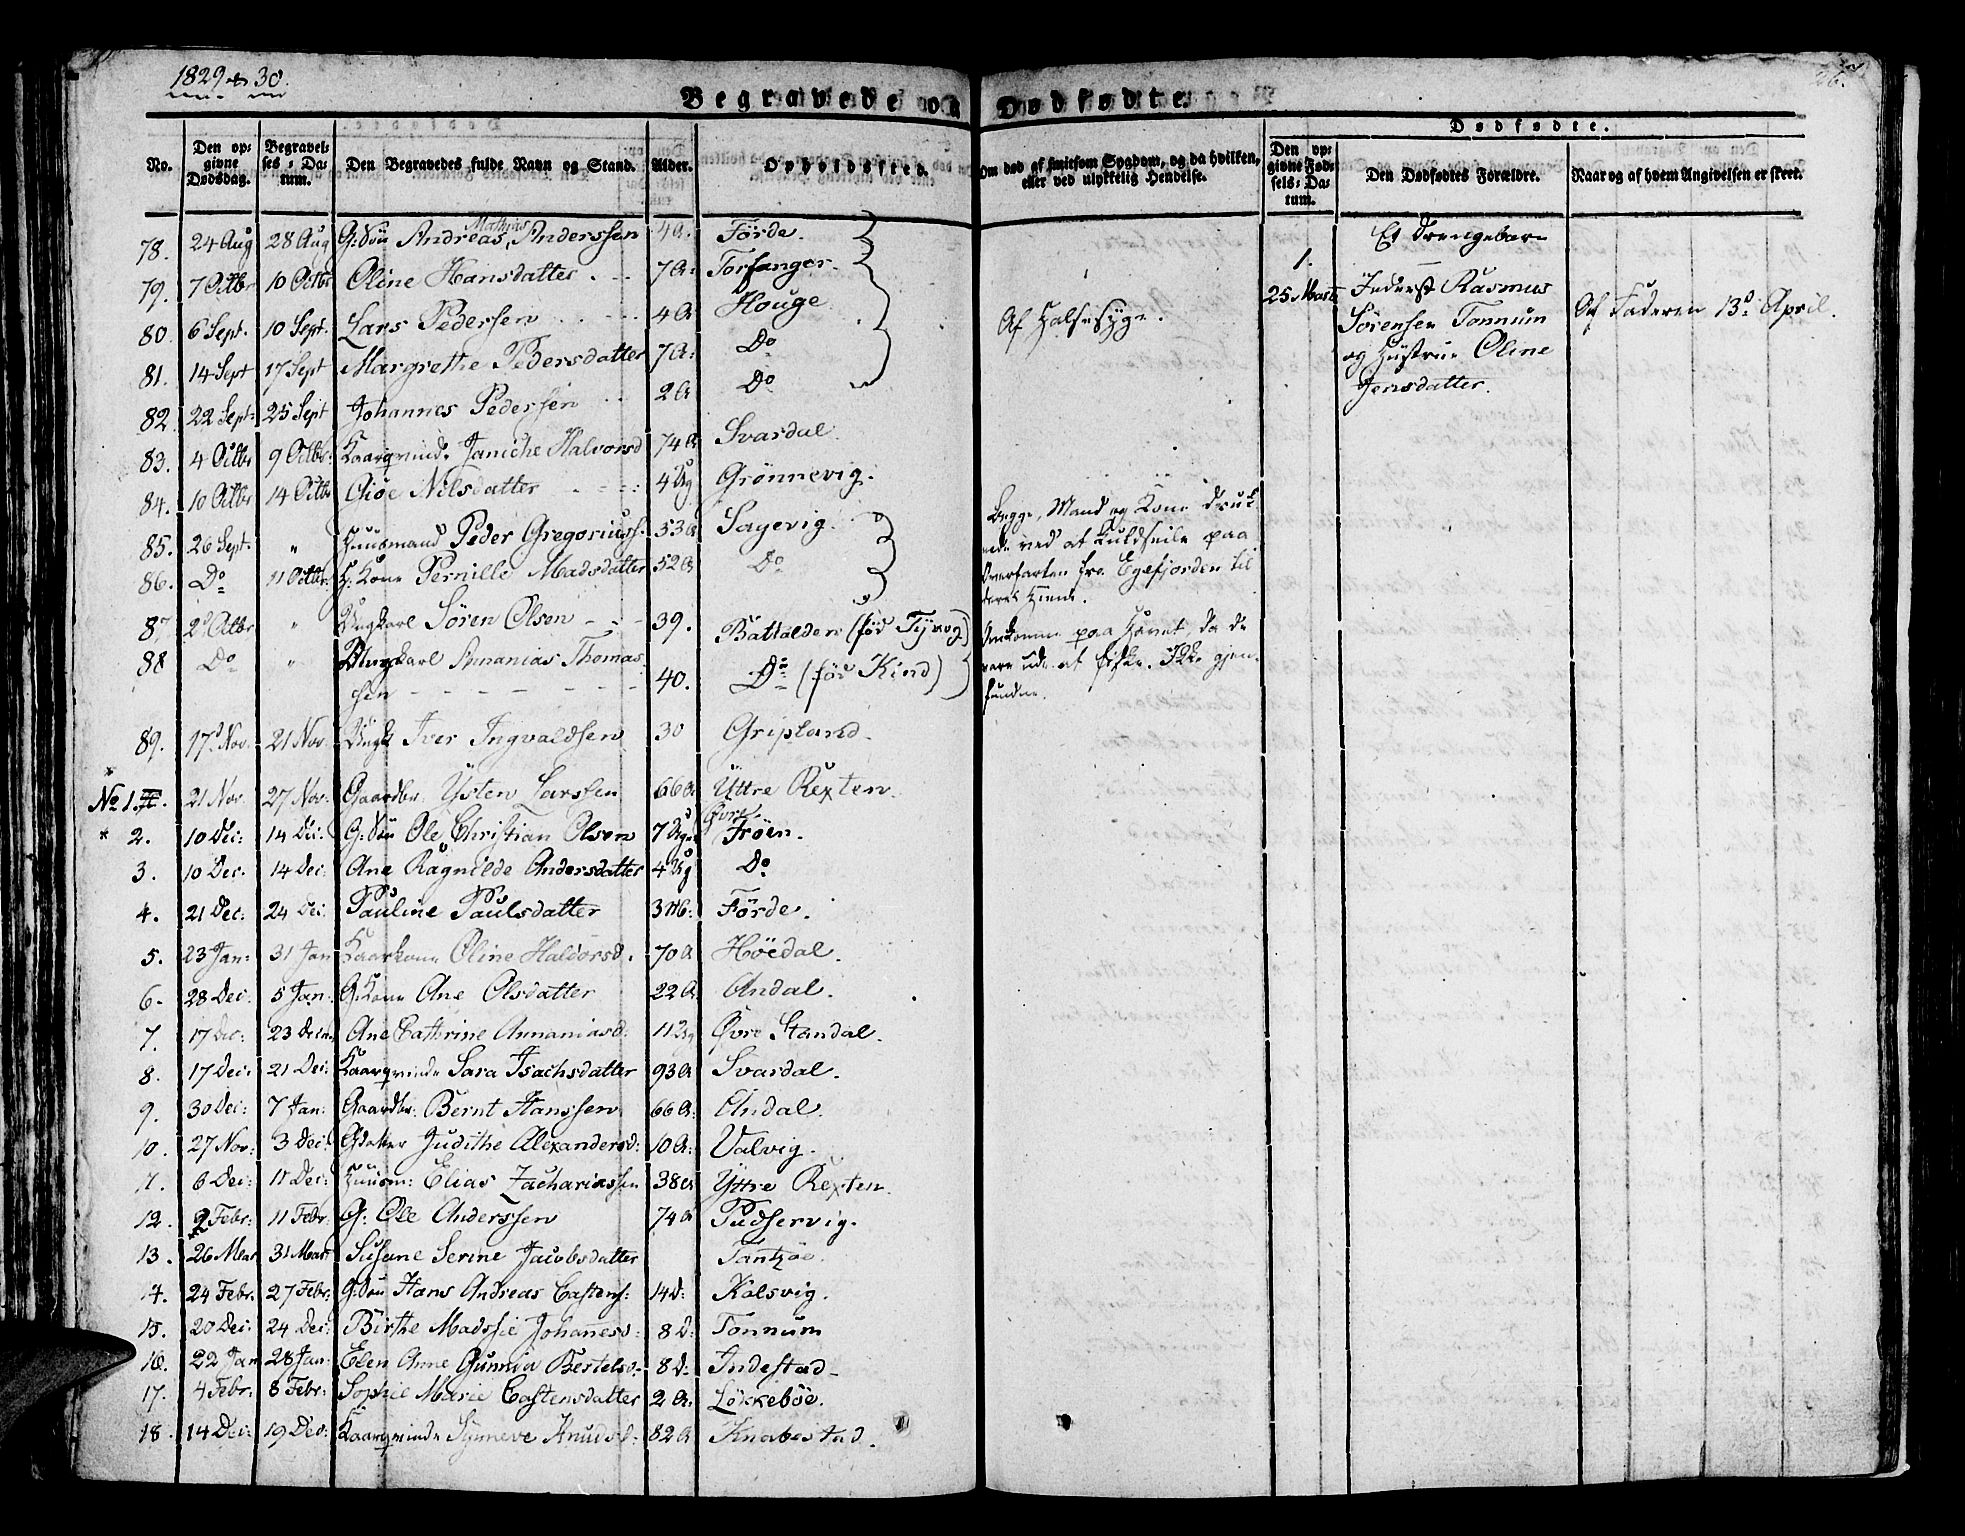 1829 & 30.
Begravede og Dødfødte.
No. Den opgivne Dødsdag. Begravelses-Datum. Den Begravedes fulde Navn og Stand. Alder. Opholdssted. Om død af smitsom Sygdom, og da hvilken, eller ved ulykkelig Hendelse.
Dødfødte.
Den opgivne Fødsels-Datum. Den Dødfødtes Forældre. Naar og af hvem Angivelsen er skeet.
78. 24 Aug 28 Aug G: Søn Andreas Mathias Anderssen 4 A. Förde.
79. 7 Octbr 10 Octbr Oline Hansdatter 7 A: Torfanger.
80. 6 Sept. 10 Sept. Lars Pedersen 4 A Houge
81. 14 Sept 17 Sept Margrethe Pedersdatter 7 A: Do
82. 22 Sept: 25 Sept Johannes Pedersen 2 A Do
Af Halsesyge.
83. 4 Octbr 9 Octbr: Kaarqvinde Janiche Halvorsd 74 A Svardal.
84. 10 Octbr 14 Octbr Nilsdatter 4 Ug Grönnevig.
85. 26 Sept. " Huusmand Peder Gregoriuss. 53 A Sagevig.
86. Do 11 Octbr. H: Kone Pernille Madsdatter 52 A Do
Begge, Mand og Kone druk-
nede ved at Kuldseile paa
Overfarten fra Egefjorden til
deres Hjem.
87. 2d Octbr " Ungkarl Sören Olsen 39. Battalden (fød Tyvog)
88 Do " Ungkarl Amanias Thomas-
sen 40. Do (fød Kind)
Omkomne paa Havet, da de
vare ude at fiske. Ikke gjen-
fundne.
89. 17d Nov. 21 Nov. Ungk Iver Ingvaldsen 30 Gripland.
No 1. 21 Nov 27 Nov: Gaardbr. Ysten Larssen 66 A Yttre Rexten.
* 2. 10 Dec: 14 Dec: G: Søn Ole Christian Olsen 7 Uger Øvre Fröen.
3. 10 Dec: 14 Dec: Ane Ragnilde Andersdatter 4 Ug Do
4. 21 Dec: 24 Dec. Pauline Paulsdatter 3 Mb: Förde.
5. 23 Jan: 31 Jan Kaarkone Oline Haldorsd. 70 A Höedal.
6. 28 Dec: 5 Jan: G: Kone Ane Olsdatter 22 A. Andal.
7. 17 Dec: 23 Decbr. Ane Cathrine Annaniasd: 11 Ug Øvre Standal.
8. 17 Dec: 21 Dec: Kaarqvinde Sara Isachsdatter 93 A Svardal.
9. 30 Dec: 7 Jan: Gaardbr: Bernt Hanssen 66 A: Andal.
10. 27 Nov: 3 Dec: Judithe Alexandersd: 10 A: Valvig.
11. 6 Dec: 11 Dec: Huusm: Elias Zachariassen 38 A Yttre Rexten.
12. 2 Febr: 11 Febr: G: Ole Anderssen 74 A Pudservig.
13. 26 Mar 31 Mart Susane Serine Jacobsdatter
14. 24 Febr. 27 Febr. G: Søn Hans Andreas Castens: 14 D: Kalsvig.
15. 20 Dec: 24 Dec: Birthe Madssie Johannesd: 8 D: Tonnum
16. 22 Jan 28 Jan: Elen Anne Gunnia Bertelsd: 8 D: Indestad
17. 4 Febr: 8 Febr: Sophie Marie Castensdatter 2 A. Løkkebøe.
18. 14 Dec: 19 Dec: Kaarqvinde Synneve Knudsd: 82 A Knabestad.
1. 25 Marti
Et Drengebarn
Inderst Rasmus
Sörensen Tonnum
og Hustrue Oline
Jensdatter.
Af Faderen 13d April.